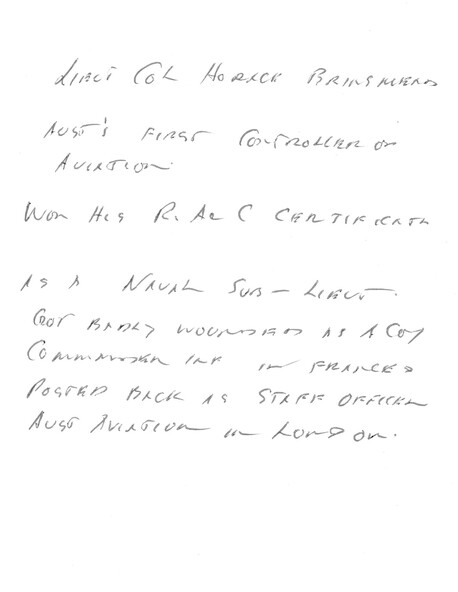 LIEUT COL HORACE BRINSMEAD
AUST'S FIRST CONTROLLER OF
AVIATION.
WON HIS R. AE C CERTIFICATE
AS A NAVAL SUB-LIEUT.
GOT BADLY WOUNDED AS A COY
COMMANDER INF IN FRANCE &
POSTED BACK AS STAFF OFFICER
AUST AVIATION IN LONDON.